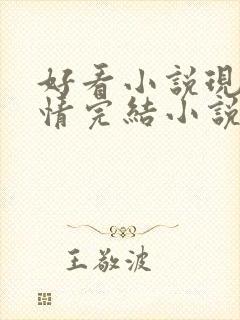 好看小說現
情完結小說
王敬波